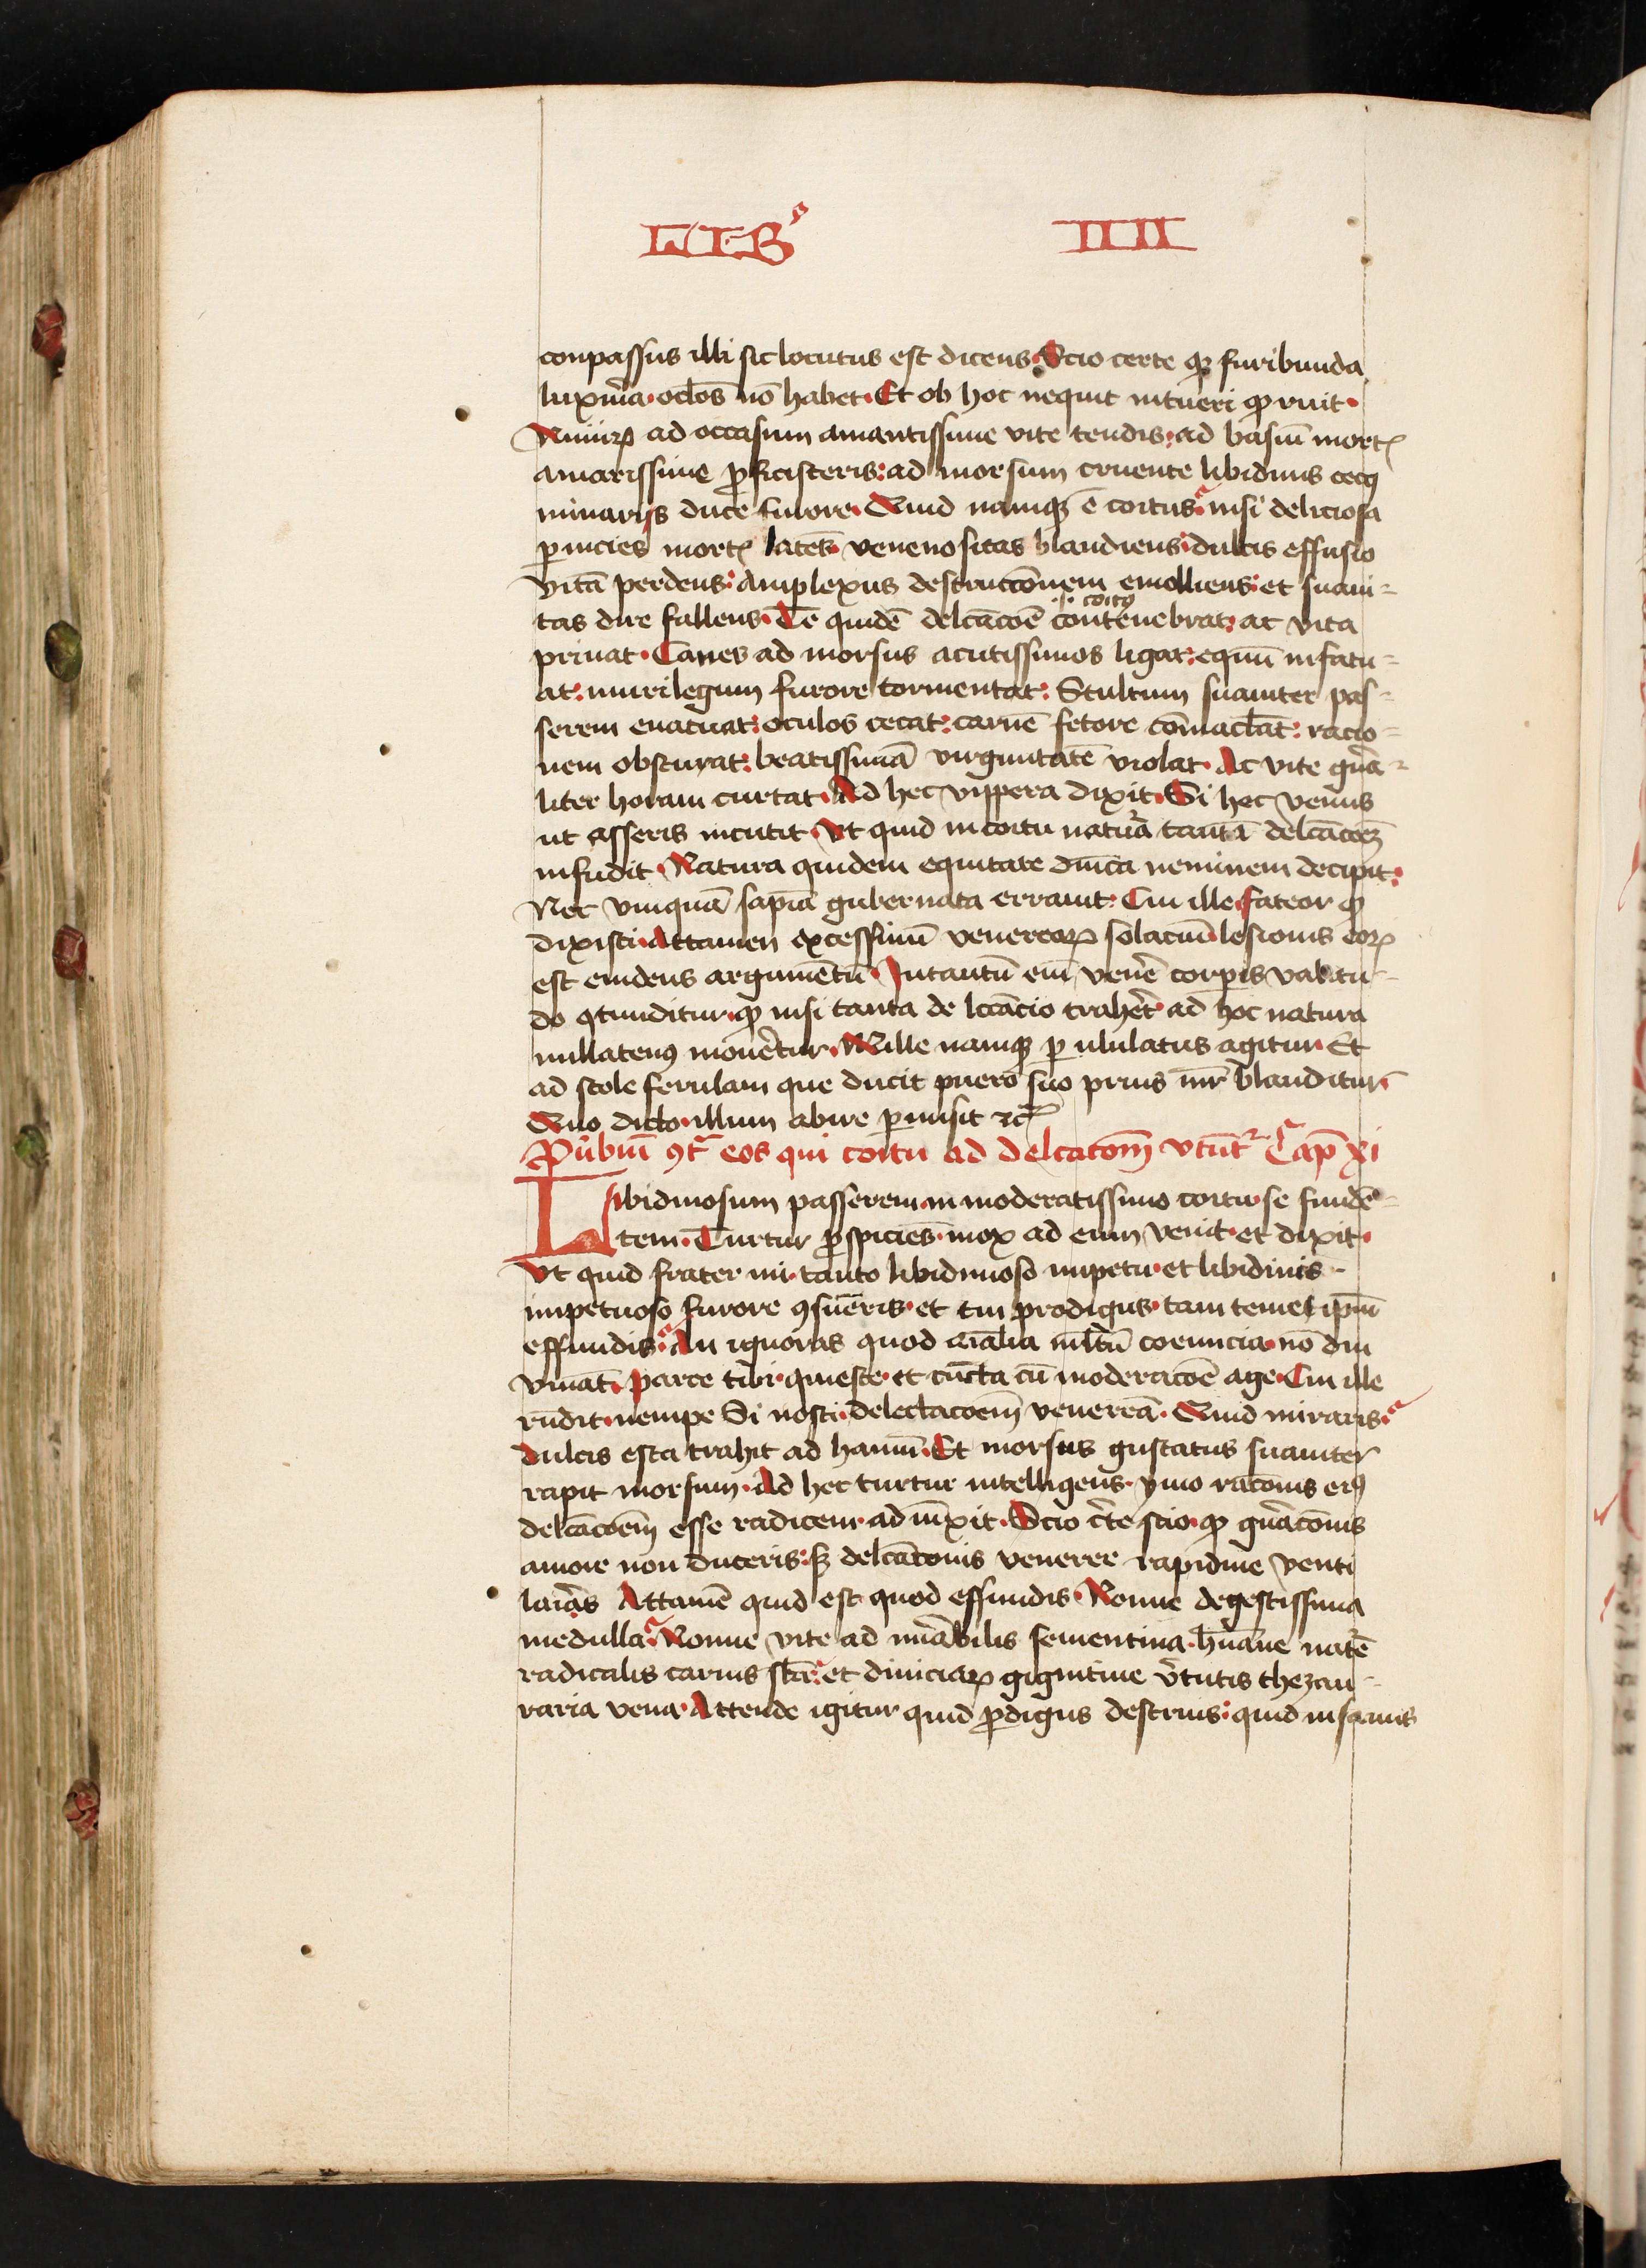 LIBꝰ IIII
conpassus illi sic locutus est dicens. Scio certe qꝫ furibunda
luxur̄ia. oc̄los nō habet. Et ob hoc nequit intueri qͩ ruit.
Nimirꝝ ad occasum amantissime vite tendis. ad basiū mortꝭ
amarissime ꝓficisceris: ad morsum cruente libidinis ceco
minaris duce furore. Quid namqꝫ ē coitus. nisi deliciosa
ꝑnicies mortꝭ latēs. venenositas blandiens: dulcis effusio
vitā perdens: Amplexus destruccōnem emolliens: et suaui-
tas dire fallens. Tē quidē delcācōe .i. coitꝰ contenebrat: ac vita
priuat. Canes ad morsus acutissimos ligat: equū infatu-
at: murilegum furore tormentat: Stultum suauiter pas-
serem euacuat: oculos cecat: carnē fetore cōmaclāt: racio-
nem obscurat: beatissimā virginitatē violat. Ac vite gn̄a-
liter horam curtat. Ad hec vippera dixit. Si hec venus
ut asseris incutit. Vt quid in coitu natura tantā delcācōꝫ
infudit. Natura quidem equitate diuīa neminem decipit:
Nec vnquā sapīa gubernata errauit: Cui ille fateor qͩ
dixisti. Attamen excessiuū venereorꝝ solaciū lesionis eorꝝ
est euidens argumētū. Intantū eīm venēe corpis valitu-
do ꝯtunditur. qͩ nisi tanta de lccācio trahēt ad hoc natura
nullatenꝰ mouēetur. Mille namqꝫ ꝑ ululatus agitur. Et
ad scole ferulam que ducit puerō suo prius mr̄ blanditur.
Quo dicto. illum abire ꝑmisit ⁊cͣ
Pūbiū ꝯt̄ eos qui coitu ad delcatōm vtūtᷣ Cap̄ xi
Libidinosum passerem. in moderatissimo coitu. se fundē-
tem. Turtur ꝑspiciēs. mox ad eum venit. et dixit.
Vt quid frater mi. tanto libidinoso impetu. et libidinis
impetuoso furore ꝯsueris. et tui prodigus. tam teme t ip̄m
effundis. An ignoras quod aīalia mltū coeuncia. nō diu
viuāt. Parce tibi. quiesce. et cūcta cū moderacōe age. Cui ille
rn̄dit. nempe Si nosti. delectacoem̄ venereā. Quid miraris.
dulcis esca trahit ad hamū. Et morsus gustatus suauiter
rapit morsum. Ad hec turtur intelligens. ymo racōnis erꝰ
delcācoem̄ esse radicem. ad iūxit. Scio cēte scio. qͩ gn̄acōnis
amore non duceris: sꝫ delcātonis veneree rapidine venti
larīs Attamē quid est quod effundis. Nonne degestissima
medulla. Nonne vite ad mīabilis sementina. hu̅ane natē
radicalis carnis sba̅. et diuiciarꝝ gignitiue v̄tutis thezau-
raria vena. Attende igitur quid ꝓdigus destruis: quid insanus